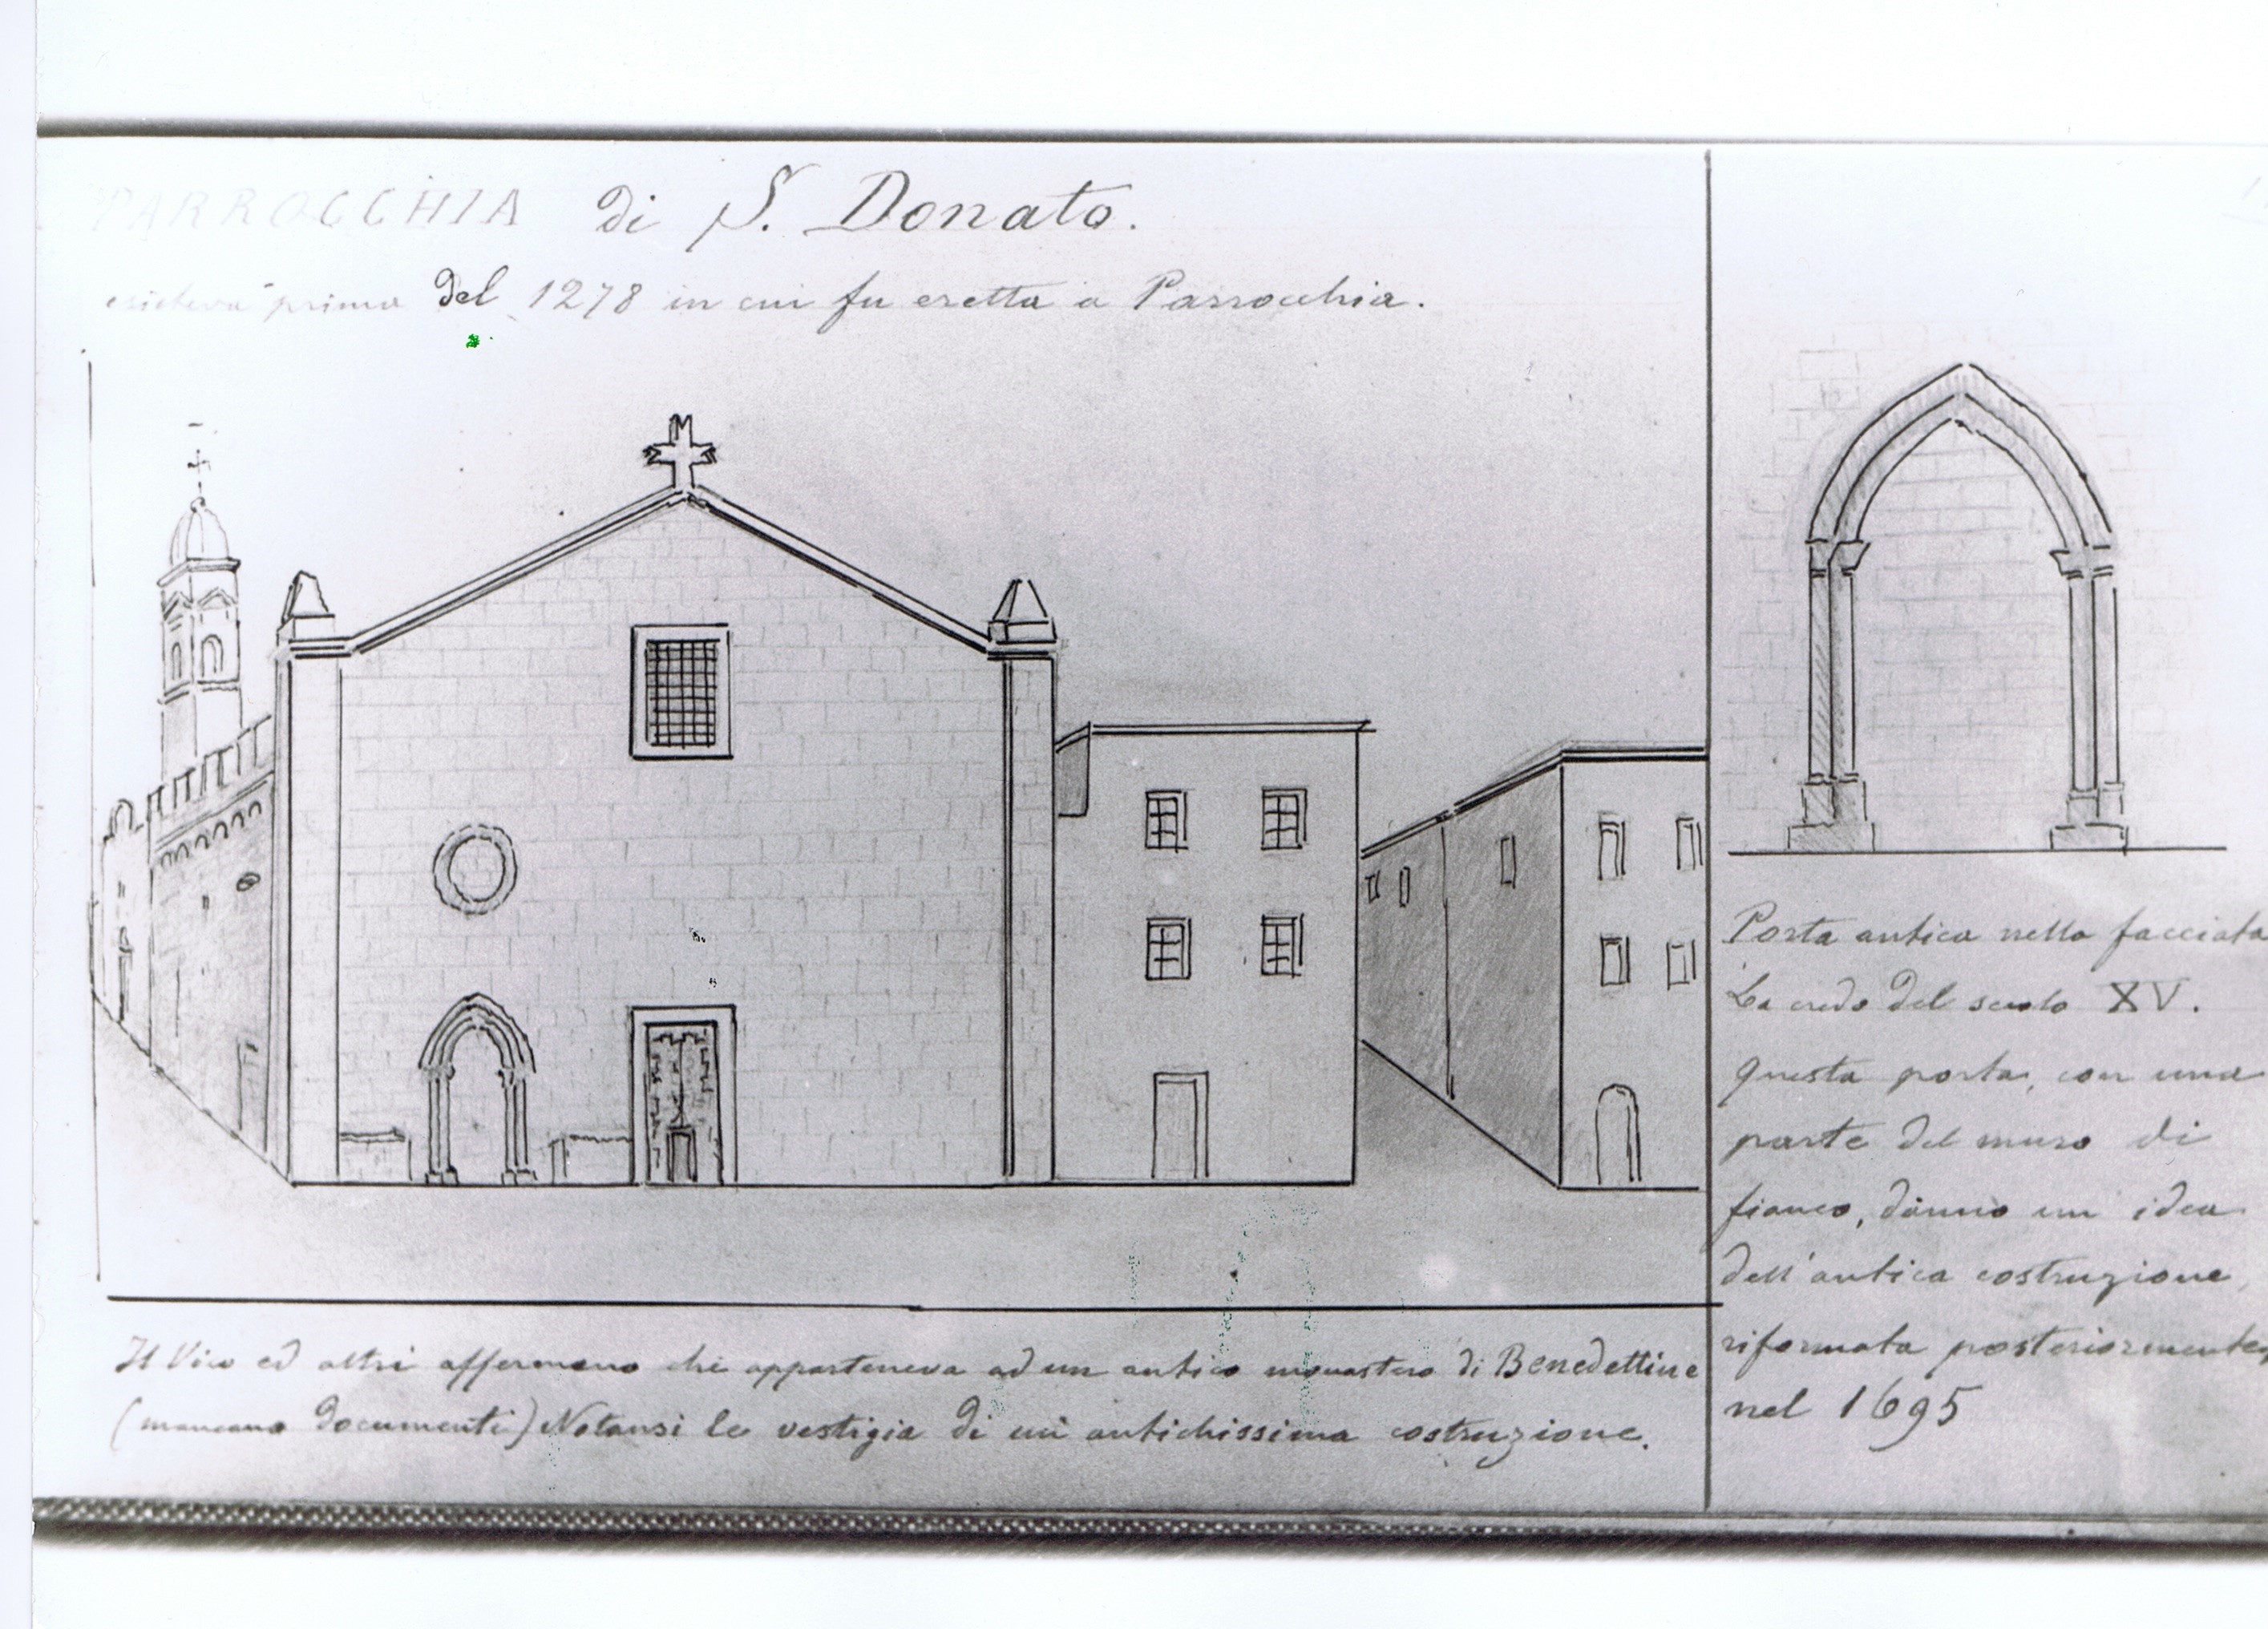 PARROCCHIA di S. Donato.
esisteva prima del 1278 in cui fu eretta a Parrocchia.
Porta antica nella facciata
La credo del secolo XV.
questa porta, con una
parte del muro di
fianco, dànno un idea
dell'antica costruzione,
riformata posteriormente
nel 1695
Il Vico ed altri affermano che apparteneva ad un antico monastero di Benedettine
(mancano documenti) Notansi le vestigia di un' antichissima costruzione.